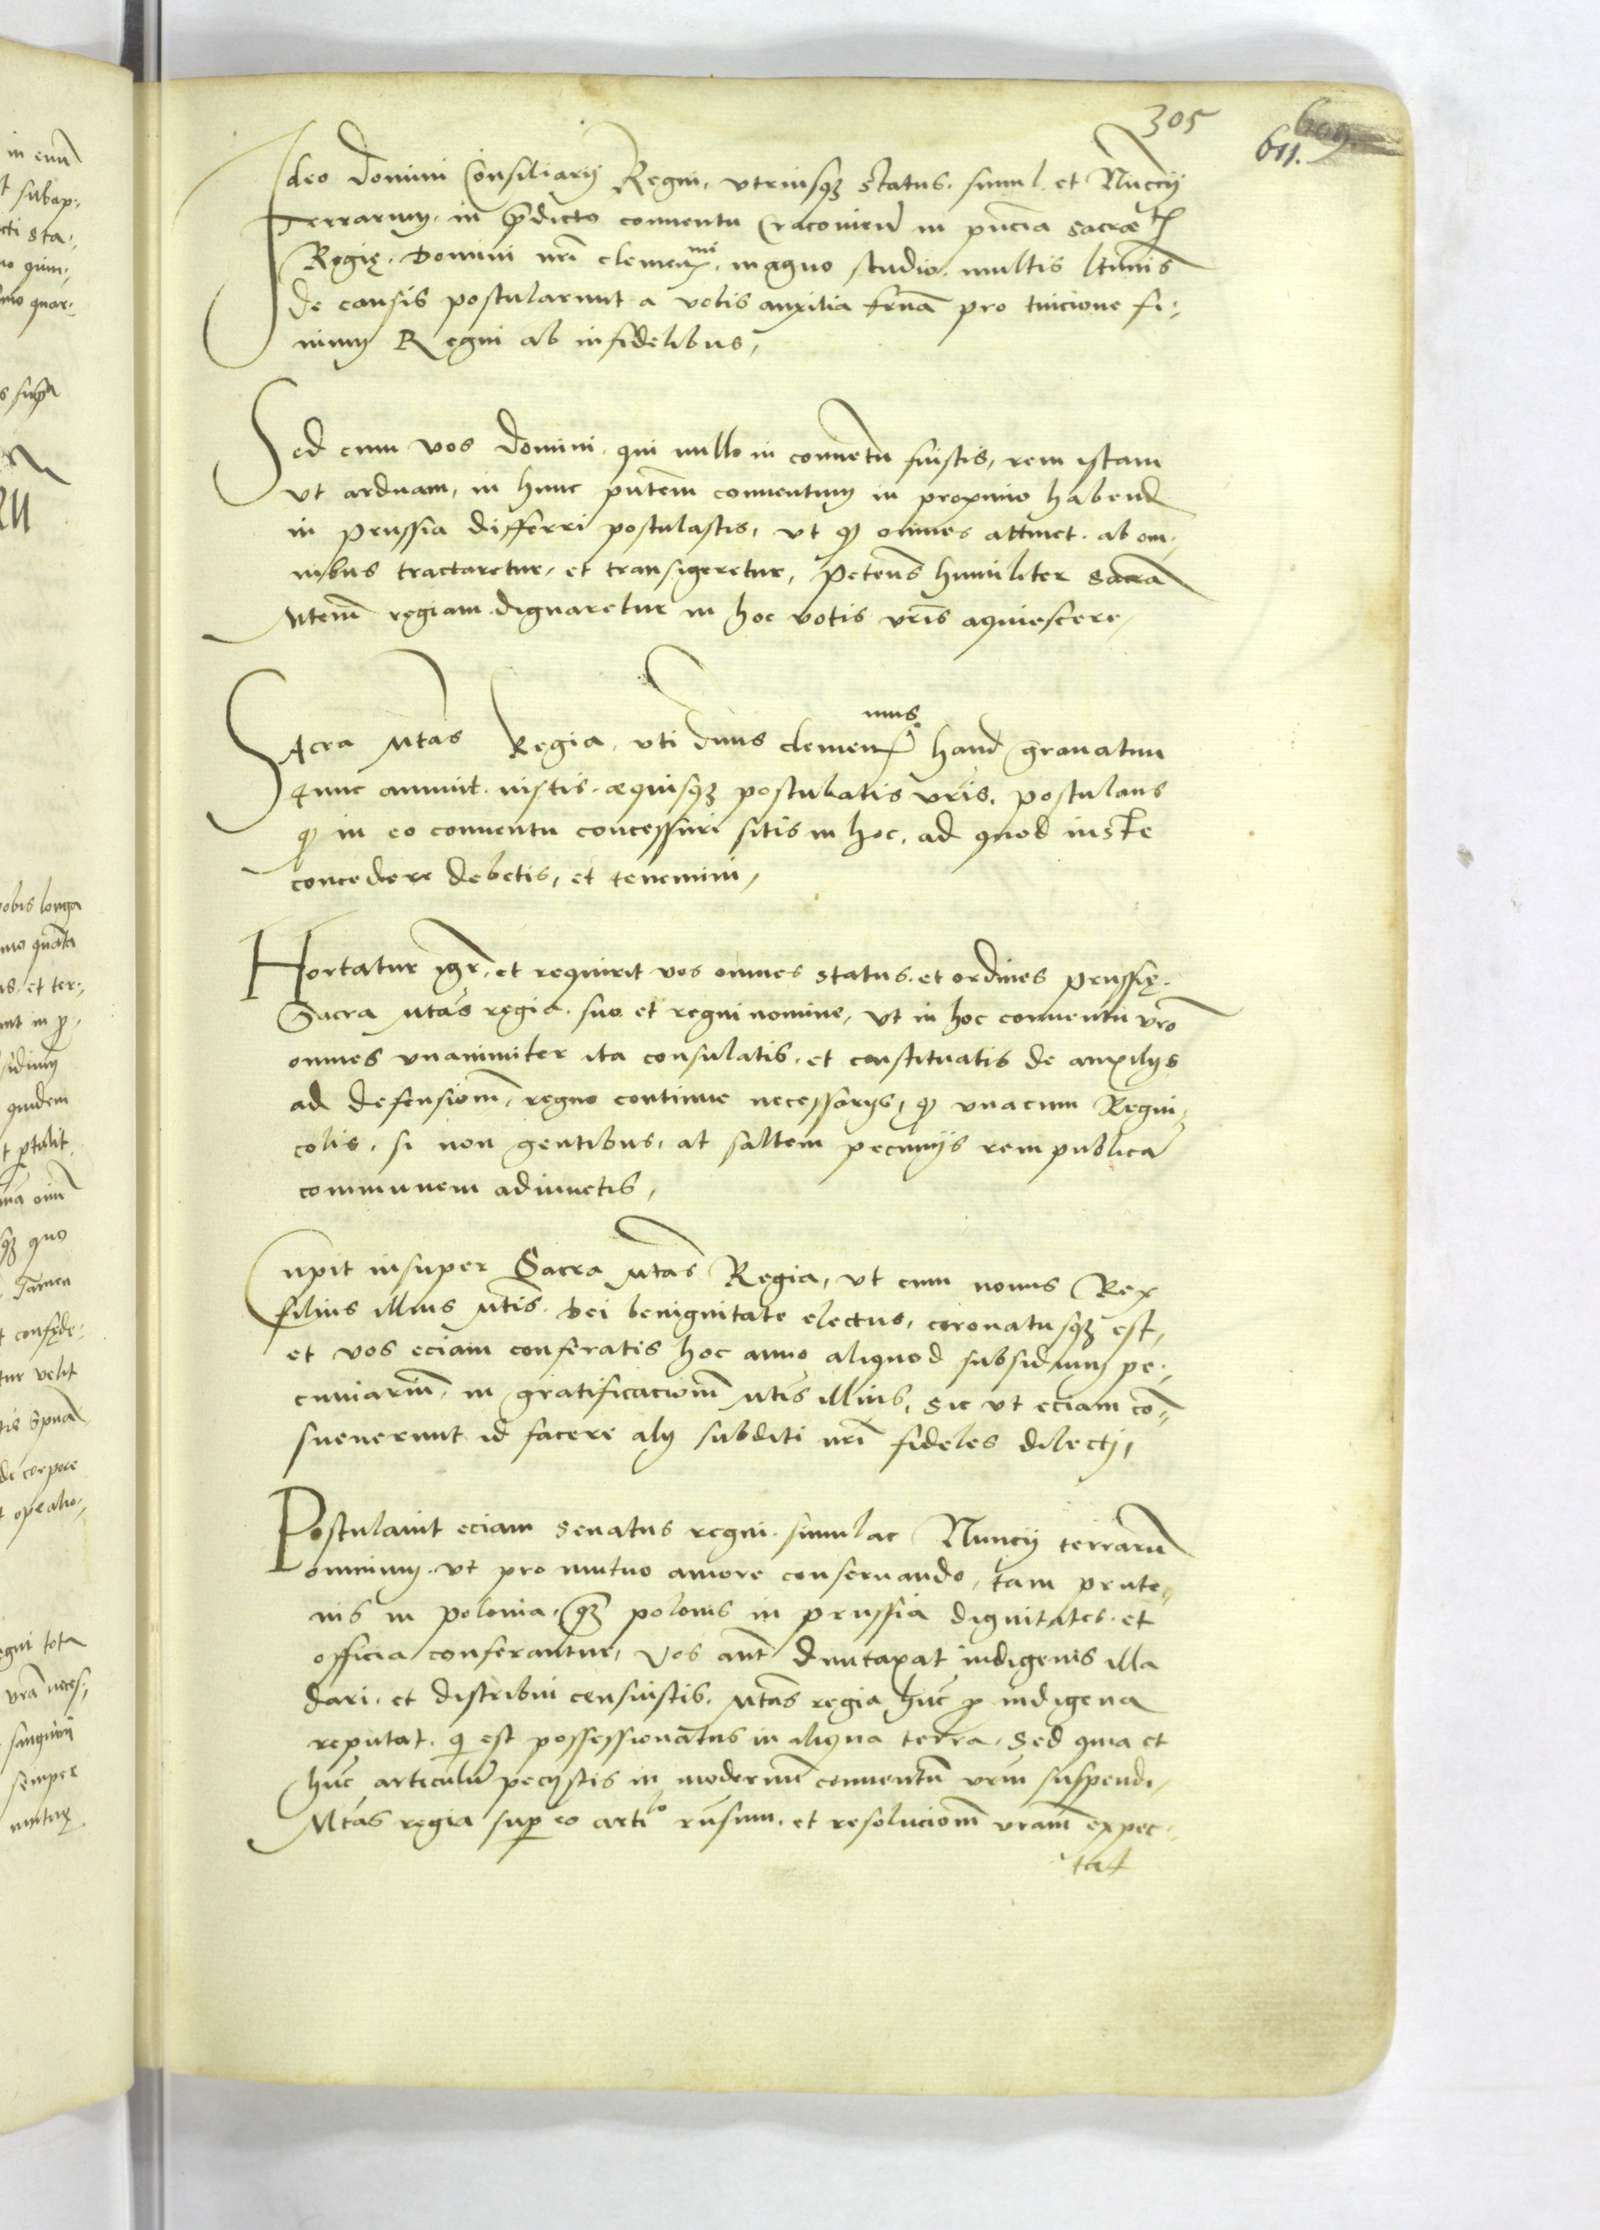 305
609.
611.
Ideo domini Consiliarij Regni, vtriusqz status, simul et Nuncij
Terrarum, in predicto conuentu Cracouien in pncia sacrae
Regię, Domini nri clemen mi, magno studio, multis ltimis
de causis postularunt a vobis auxilia fernda pro tuicione fi-
nium Regni ab infidelibus,
Sed cum vos domini, qui nullo in conuetu fuistis, rem istam
vt arduam, in hunc pntem conuentum in proximo habend
in prussia differri postulastis, vt quod omnes attinet, ab om-
nibus tractaretur, et transigeretur, Petens humiliter sacra
Mtem regiam dignaretur in hoc votis vris aquiescere,
Sacra Mtas Regia, vti dnus clemen mus haud grauatim
tunc annuit iustis aequisqz postulatis vris, postulans
quod in eo conuentu concessuri sitis in hoc, ad quod iuste
concedere debetis, et tenemini,
Hortatur igr, et requirit vos omnes status et ordines prussię
Sacra Mtas regia suo et regni nomine, vt in hoc conuentu vro
omnes vnanimiter ita consulatis et constituatis de auxilijs
ad defensionem regno continue necessarijs, quod vnacum Regni-
colis, si non gentibus, at saltem pecunijs rempublica
communem adiuuetis,
Cupit insuper Sacra Mtas Regia, vt cum nouus Rex
filius illius Mtis Dei benignitate electus, coronatusqz est,
et vos eciam conferatis hoc anno aliquod subsidium pe-
cuniarium in gratificacionem Mtis illius, sic vt eciam con-
sueuerunt id facere alij subditi nri fideles dilecti,
Postulauit eciam senatus regni simul ac Nuncij terrarum
omnium, vt pro mutuo amore conseruando, tam prute-
nis in polonia, quam polonis in prussia dignitates et
officia conferantur, Vos aut duntaxat indigenis illa
dari et distribui censuistis, Mtas regia hunc pro indigena
reputat qui est possessionatus in aliqua terra, Sed quia et
hunc articulum pecijstis in modernum conuentum vrum suspendi,
Mtas regia super eo artilo rursum et resolucionem vram expec-
tat